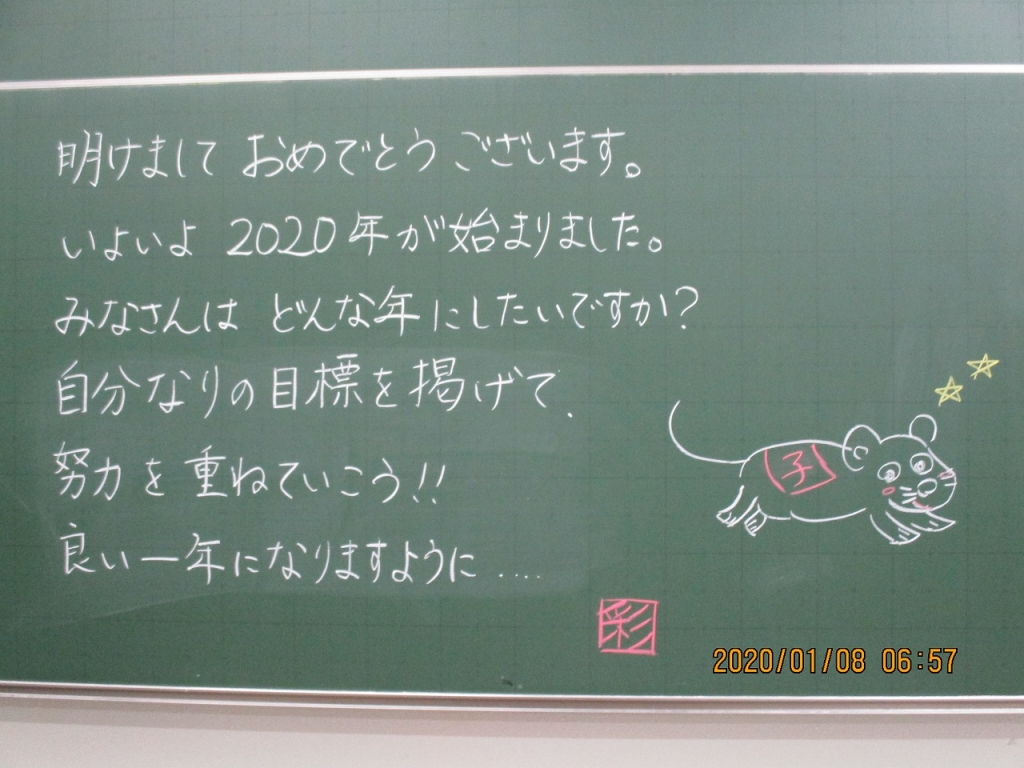 明けまして おめでとう ございます。
いよいよ 2020年が始まりました。
みなさんは どんな年にしたいですか?
自分なりの目標を掲げて、
努力を重ねていこう!!
良い一年になりますように ....
子
彩
2020/01/08 06:57